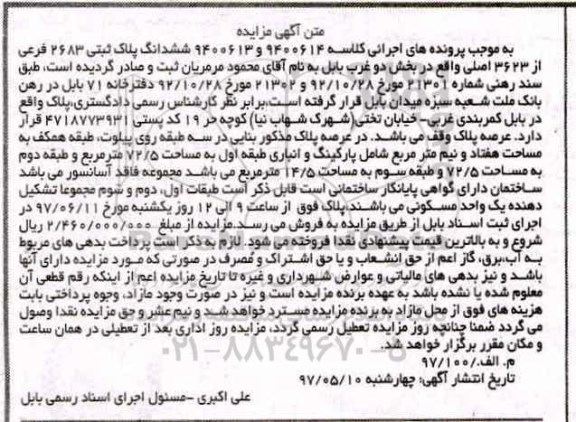 متن آگهی مزایده
به موجب پرونده های اجرائی کلاسه ۹۴۰۰۶۱۴ و ۹۴۰۰۶۱۳ ششدانگ پلاک ثبتی ۲۶۸۳ فرعی
از ۳۶۲۳ اصلی واقع در بخش دو غرب بابل به نام آقای محمود مرمریان ثبت و صادر گردیده است، طبق
سند رهنی شماره ۲۱۳۰۱ مورخ ۹۲/۱۰/۲۸ و ۲۱۳۰۲ مورخ ۹۲/۱۰/۲۸ دفترخانه ۷۱ بابل در رهن
بانک ملت شعبه سبزه میدان بابل قرار گرفته است،برابر نظر کارشناس رسمی دادگستری،پلاک واقع
در بابل کمربندی غربی- خیابان تختی(شهرک شهاب نیا) کوچه حر ۱۹ کد پستی ۴۷۱۸۷۷۳۹۳۱ قرار
دارد. عرصه پلاک وقف می باشد. در عرصه پلاک مذکور بنایی در سه طبقه روی پیلوت، طبقه همکف به
مساحت هفتاد و نیم متر مربع شامل پارکینگ و انباری طبقه اول به مساحت ۷۲/۵ مترمربع و طبقه دوم
به مساحت ۷۲/۵ و طبقه سوم به مساحت ۱۴/۵ مترمربع می باشد مجموعه فاقد آسانسور می باشد
ساختمان دارای گواهی پایانکار ساختمانی است قابل ذکر است طبقات اول، دوم و سوم مجموعا تشکیل
دهنده یک واحد مسکونی می باشند،پلاک فوق از ساعت ۹ الی ۱۲ روز یکشنبه مورخ ۹۷/۰۶/۱۱ در
اجرای ثبت اسناد بابل از طریق مزایده به فروش می رسد.مزایده از مبلغ ۲/۴۶۰/۰۰۰/۰۰۰ ریال
شروع و به بالاترین قیمت پیشنهادی نقدا فروخته می شود. لازم به ذکر است پرداخت بدهی های مربوط
به آب،برق، گاز اعم از حق انشعاب و یا حق اشتراک و مصرف در صورتی که مورد مزایده دارای آنها
باشد و نیز بدهی های مالیاتی و عوارض شهرداری و غیره تا تاریخ مزایده اعم از اینکه رقم قطعی آن
معلوم شده یا نشده باشد به عهده برنده مزایده است و نیز در صورت وجود مازاد، وجوه پرداختی بابت
هزینه های فوق از محل مازاد به برنده مزایده مسترد خواهد شد و نیم عشر و حق مزایده نقدا وصول
می گردد ضمنا چنانچه روز مزایده تعطیل رسمی گردد، مزایده روز اداری بعد از تعطیلی در همان ساعت
و مکان مقرر برگزار خواهد شد.
۰۲۱-۸۸۳۴۹۶۷۰-۵
م. الف/۹۷/۱۰۰
تاریخ انتشار آگهی: چهارشنبه ۹۷/۰۵/۱۰
علی اکبری -مسئول اجرای اسناد رسمی بابل